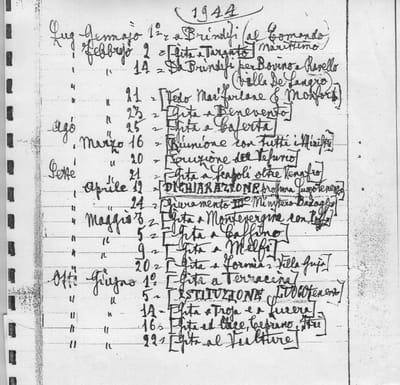 1944
Lug Gennajo 1º = a Brindisi (al Comando
Febbrajo 2 = Gita a Taranto Marittimo)
" 14 = Da Brindisi per Bovino a Ravello
(Villa De Sangro)
" 21 = Vedo Mac'Farlane &
" 23 = Gita a Benevento
Ago " 25 = Gita a Caserta
Marzo 16 = Riunione con tutti i Ministri
" 20 = Eruzione del Vesuvio
Sette " 21 = Gita a Scapoli oltre Venafro
Aprile 12 = DICHIARAZIONE Luogotenenza
" 24 = Giuramento IIIº Ministero Badoglio
Maggio 3 = Gita a Montevergine con
" 5 = Gita a Cassino
" 9 = Gita a Melfi
" 20 = Gita a Formia, Villa
Ott: Giugno 1º = Gita a Terracina
" 5 = ISTITUZIONE LUOGOtenenza
" 14 = Gita a Troja e a Lucera
" 16 = Gita ad Ceprano,
" 22 = Gita al Vulture